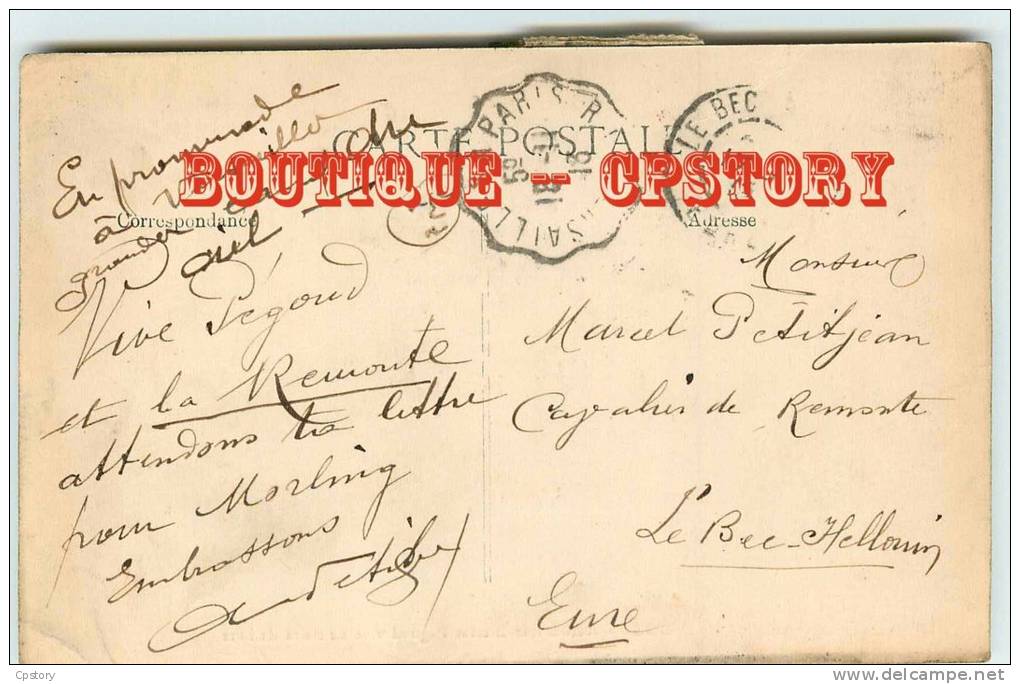 CARTE POSTALE
BOUTIQUE -- CPSTORY
Correspondance
Adresse
PARIS
LE BEC
En promenade
à
Vive Pégoud
et la Remonte
attendons ta lettre
pour Morling
Embrassons
Monsieur
Marcel Petitjean
Cavalier de Remonte
Le Bec-Hellouin
Eure
Cpstory
www.delcampe.net